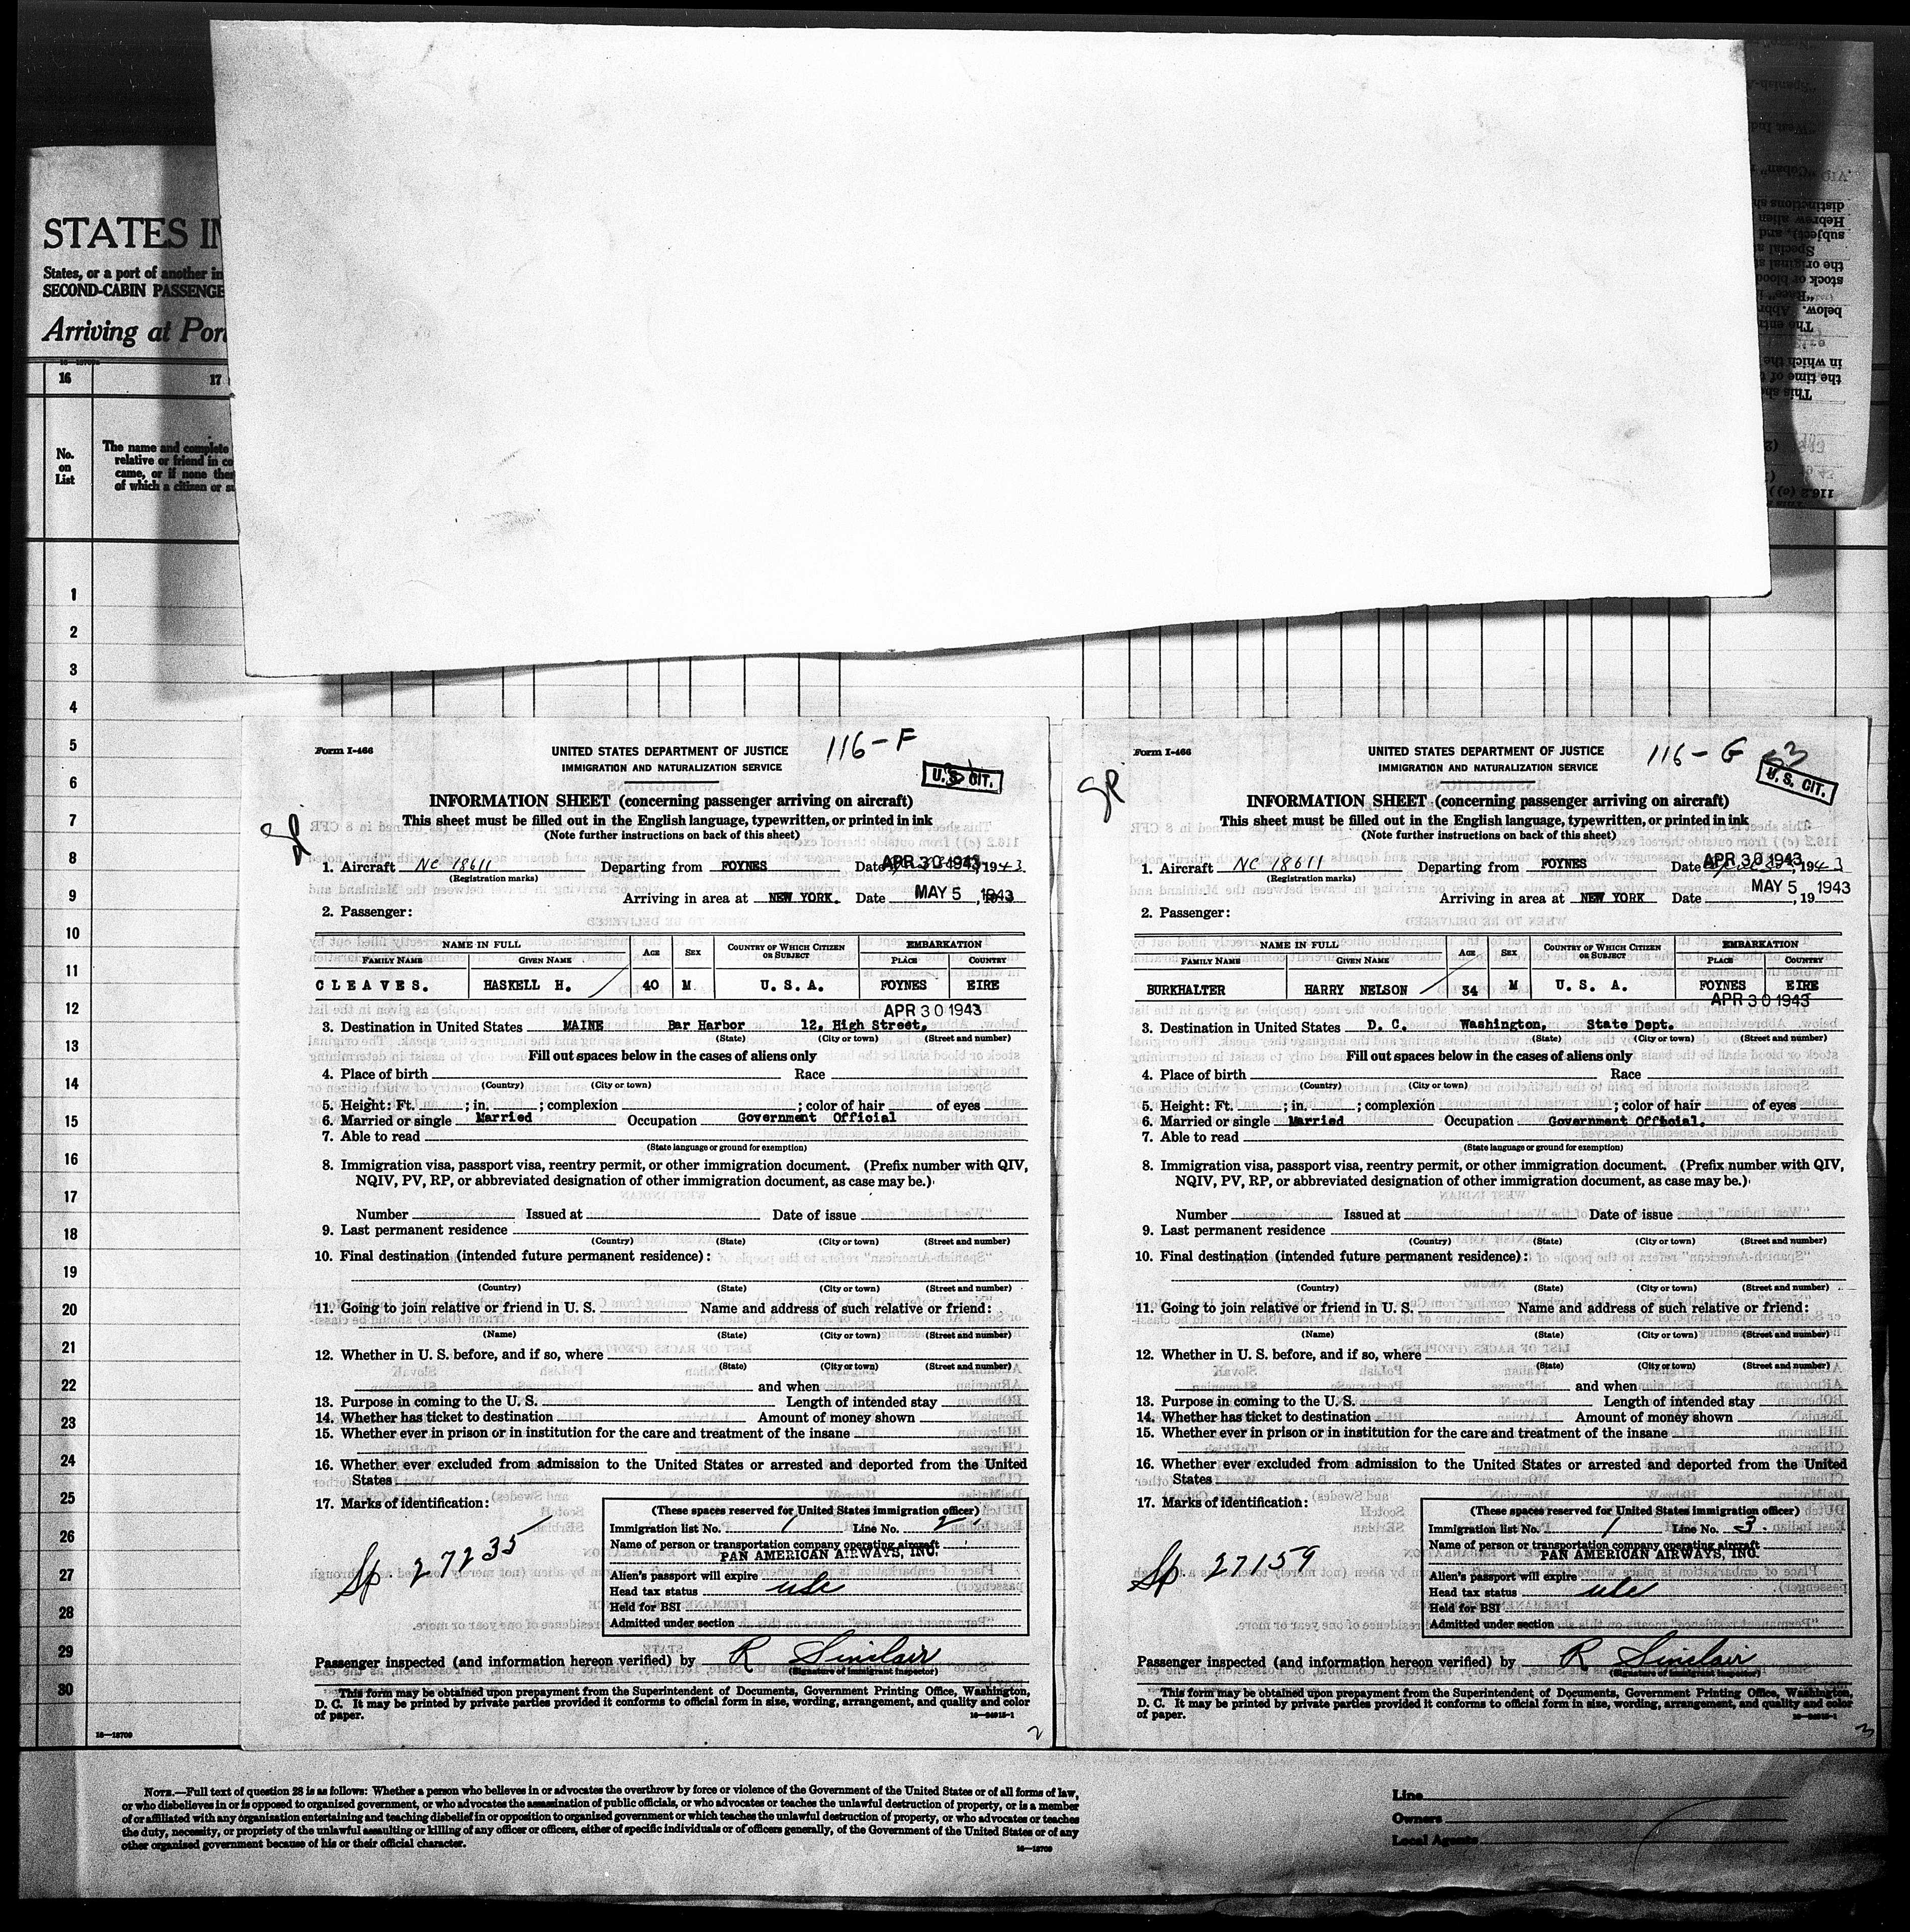 STATES IN
States, or a port of another in
SECOND-CABIN PASSENGE
Arriving at Por
16 17
No.
on
List
The name and complete
relative or friend in co
came, or if none ther
of which a citizen or su
1
2
3
4
5
6
7
8
9
10
11
12
13
14
15
16
17
18
19
20
21
22
23
24
25
26
27
28
29
30
16—13709
Form I-466
UNITED STATES DEPARTMENT OF JUSTICE 116-F
IMMIGRATION AND NATURALIZATION SERVICE
U.S. CIT.
INFORMATION SHEET (concerning passenger arriving on aircraft)
This sheet must be filled out in the English language, typewritten, or printed in ink
(Note further instructions on back of this sheet)
1. Aircraft NC 18611 Departing from FOYNES Date APR 30 1943, 1943
(Registration marks)
Arriving in area at NEW YORK. Date MAY 5 1943
2. Passenger:
NAME IN FULL Age Sex Country of Which Citizen or Subject EMBARKATION
Family Name Given Name Place Country
CLEAVES. HASKELL H. 40 M. U.S.A. FOYNES EIRE
APR 30 1943
3. Destination in United States MAINE Bar Harbor 12, High Street,
(State) (City or town) (Street and number)
Fill out spaces below in the cases of aliens only
4. Place of birth Race
(Country) (City or town)
5. Height: Ft. ; in. ; complexion ; color of hair of eyes
6. Married or single Married Occupation Government Official
7. Able to read
(State language or ground for exemption)
8. Immigration visa, passport visa, reentry permit, or other immigration document. (Prefix number with QIV,
NQIV, PV, RP, or abbreviated designation of other immigration document, as case may be.)
Number Issued at Date of issue
9. Last permanent residence
(Country) (State) (City or town) (Street and number)
10. Final destination (intended future permanent residence):
(Country) (State) (City or town) (Street and number)
11. Going to join relative or friend in U. S. Name and address of such relative or friend:
(Name) (State) (City or town) (Street and number)
12. Whether in U. S. before, and if so, where
(State) (City or town) (Street and number)
and when
13. Purpose in coming to the U. S. Length of intended stay
14. Whether has ticket to destination Amount of money shown
15. Whether ever in prison or in institution for the care and treatment of the insane
16. Whether ever excluded from admission to the United States or arrested and deported from the United
States
17. Marks of identification:
Sp. 27235
(These spaces reserved for United States immigration officer)
Immigration list No. 1 Line No. 2
Name of person or transportation company operating aircraft
PAN AMERICAN AIRWAYS, INC.
Alien's passport will expire
Head tax status usc
Held for BSI
Admitted under section
Passenger inspected (and information hereon verified) by R Sinclair
(Signature of Immigrant Inspector)
This form may be obtained upon prepayment from the Superintendent of Documents, Government Printing Office, Washington,
D. C. It may be printed by private parties provided it conforms to official form in size, wording, arrangement, and quality and color
of paper. 16—24915-1
2
Form I-466
UNITED STATES DEPARTMENT OF JUSTICE 116-G 3
IMMIGRATION AND NATURALIZATION SERVICE
U.S. CIT.
INFORMATION SHEET (concerning passenger arriving on aircraft)
This sheet must be filled out in the English language, typewritten, or printed in ink
(Note further instructions on back of this sheet)
1. Aircraft NC 18611 Departing from FOYNES Date APR 30 1943, 1943
(Registration marks)
Arriving in area at NEW YORK Date MAY 5 1943, 19
2. Passenger:
NAME IN FULL Age Sex Country of Which Citizen or Subject EMBARKATION
Family Name Given Name Place Country
BURKHALTER HARRY NELSON 34 M U.S.A. FOYNES EIRE
APR 30 1943
3. Destination in United States D. C. Washington, State Dept.
(State) (City or town) (Street and number)
Fill out spaces below in the cases of aliens only
4. Place of birth Race
(Country) (City or town)
5. Height: Ft. ; in. ; complexion ; color of hair of eyes
6. Married or single Married Occupation Government Official.
7. Able to read
(State language or ground for exemption)
8. Immigration visa, passport visa, reentry permit, or other immigration document. (Prefix number with QIV,
NQIV, PV, RP, or abbreviated designation of other immigration document, as case may be.)
Number Issued at Date of issue
9. Last permanent residence
(Country) (State) (City or town) (Street and number)
10. Final destination (intended future permanent residence):
(Country) (State) (City or town) (Street and number)
11. Going to join relative or friend in U. S. Name and address of such relative or friend:
(Name) (State) (City or town) (Street and number)
12. Whether in U. S. before, and if so, where
(State) (City or town) (Street and number)
and when
13. Purpose in coming to the U. S. Length of intended stay
14. Whether has ticket to destination Amount of money shown
15. Whether ever in prison or in institution for the care and treatment of the insane
16. Whether ever excluded from admission to the United States or arrested and deported from the United
States
17. Marks of identification:
Sp 27159
(These spaces reserved for United States immigration officer)
Immigration list No. 1 Line No. 3.
Name of person or transportation company operating aircraft
PAN AMERICAN AIRWAYS, INC.
Alien's passport will expire
Head tax status usc
Held for BSI
Admitted under section
Passenger inspected (and information hereon verified) by R Sinclair
(Signature of Immigrant Inspector)
This form may be obtained upon prepayment from the Superintendent of Documents, Government Printing Office, Washington,
D. C. It may be printed by private parties provided it conforms to official form in size, wording, arrangement, and quality and color
of paper. 16—24915-1
3
NOTE.—Full text of question 28 is as follows: Whether a person who believes in or advocates the overthrow by force or violence of the Government of the United States or of all forms of law,
or who disbelieves in or is opposed to organised government, or who advocates the assassination of public officials, or who advocates or teaches the unlawful destruction of property, or is a member
of or affiliated with any organisation entertaining and teaching disbelief in or opposition to organized government or which teaches the unlawful destruction of property, or who advocates or teaches
the duty, necessity, or propriety of the unlawful assaulting or killing of any officer or officers, either of specific individuals or of officers generally, of the Government of the United States or of any
other organised government because of his or their official character. 16—13709
Line
Owners
Local Agents